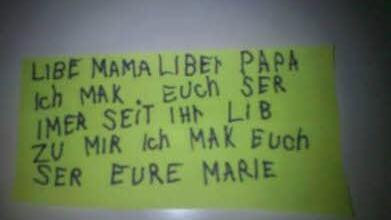 LIBE MAMA LIBER PAPA
Ich MAK. EUch SER
IMER SEIT IHR LIB
ZU MIR Ich MAK EUch
SER EURE MARIE